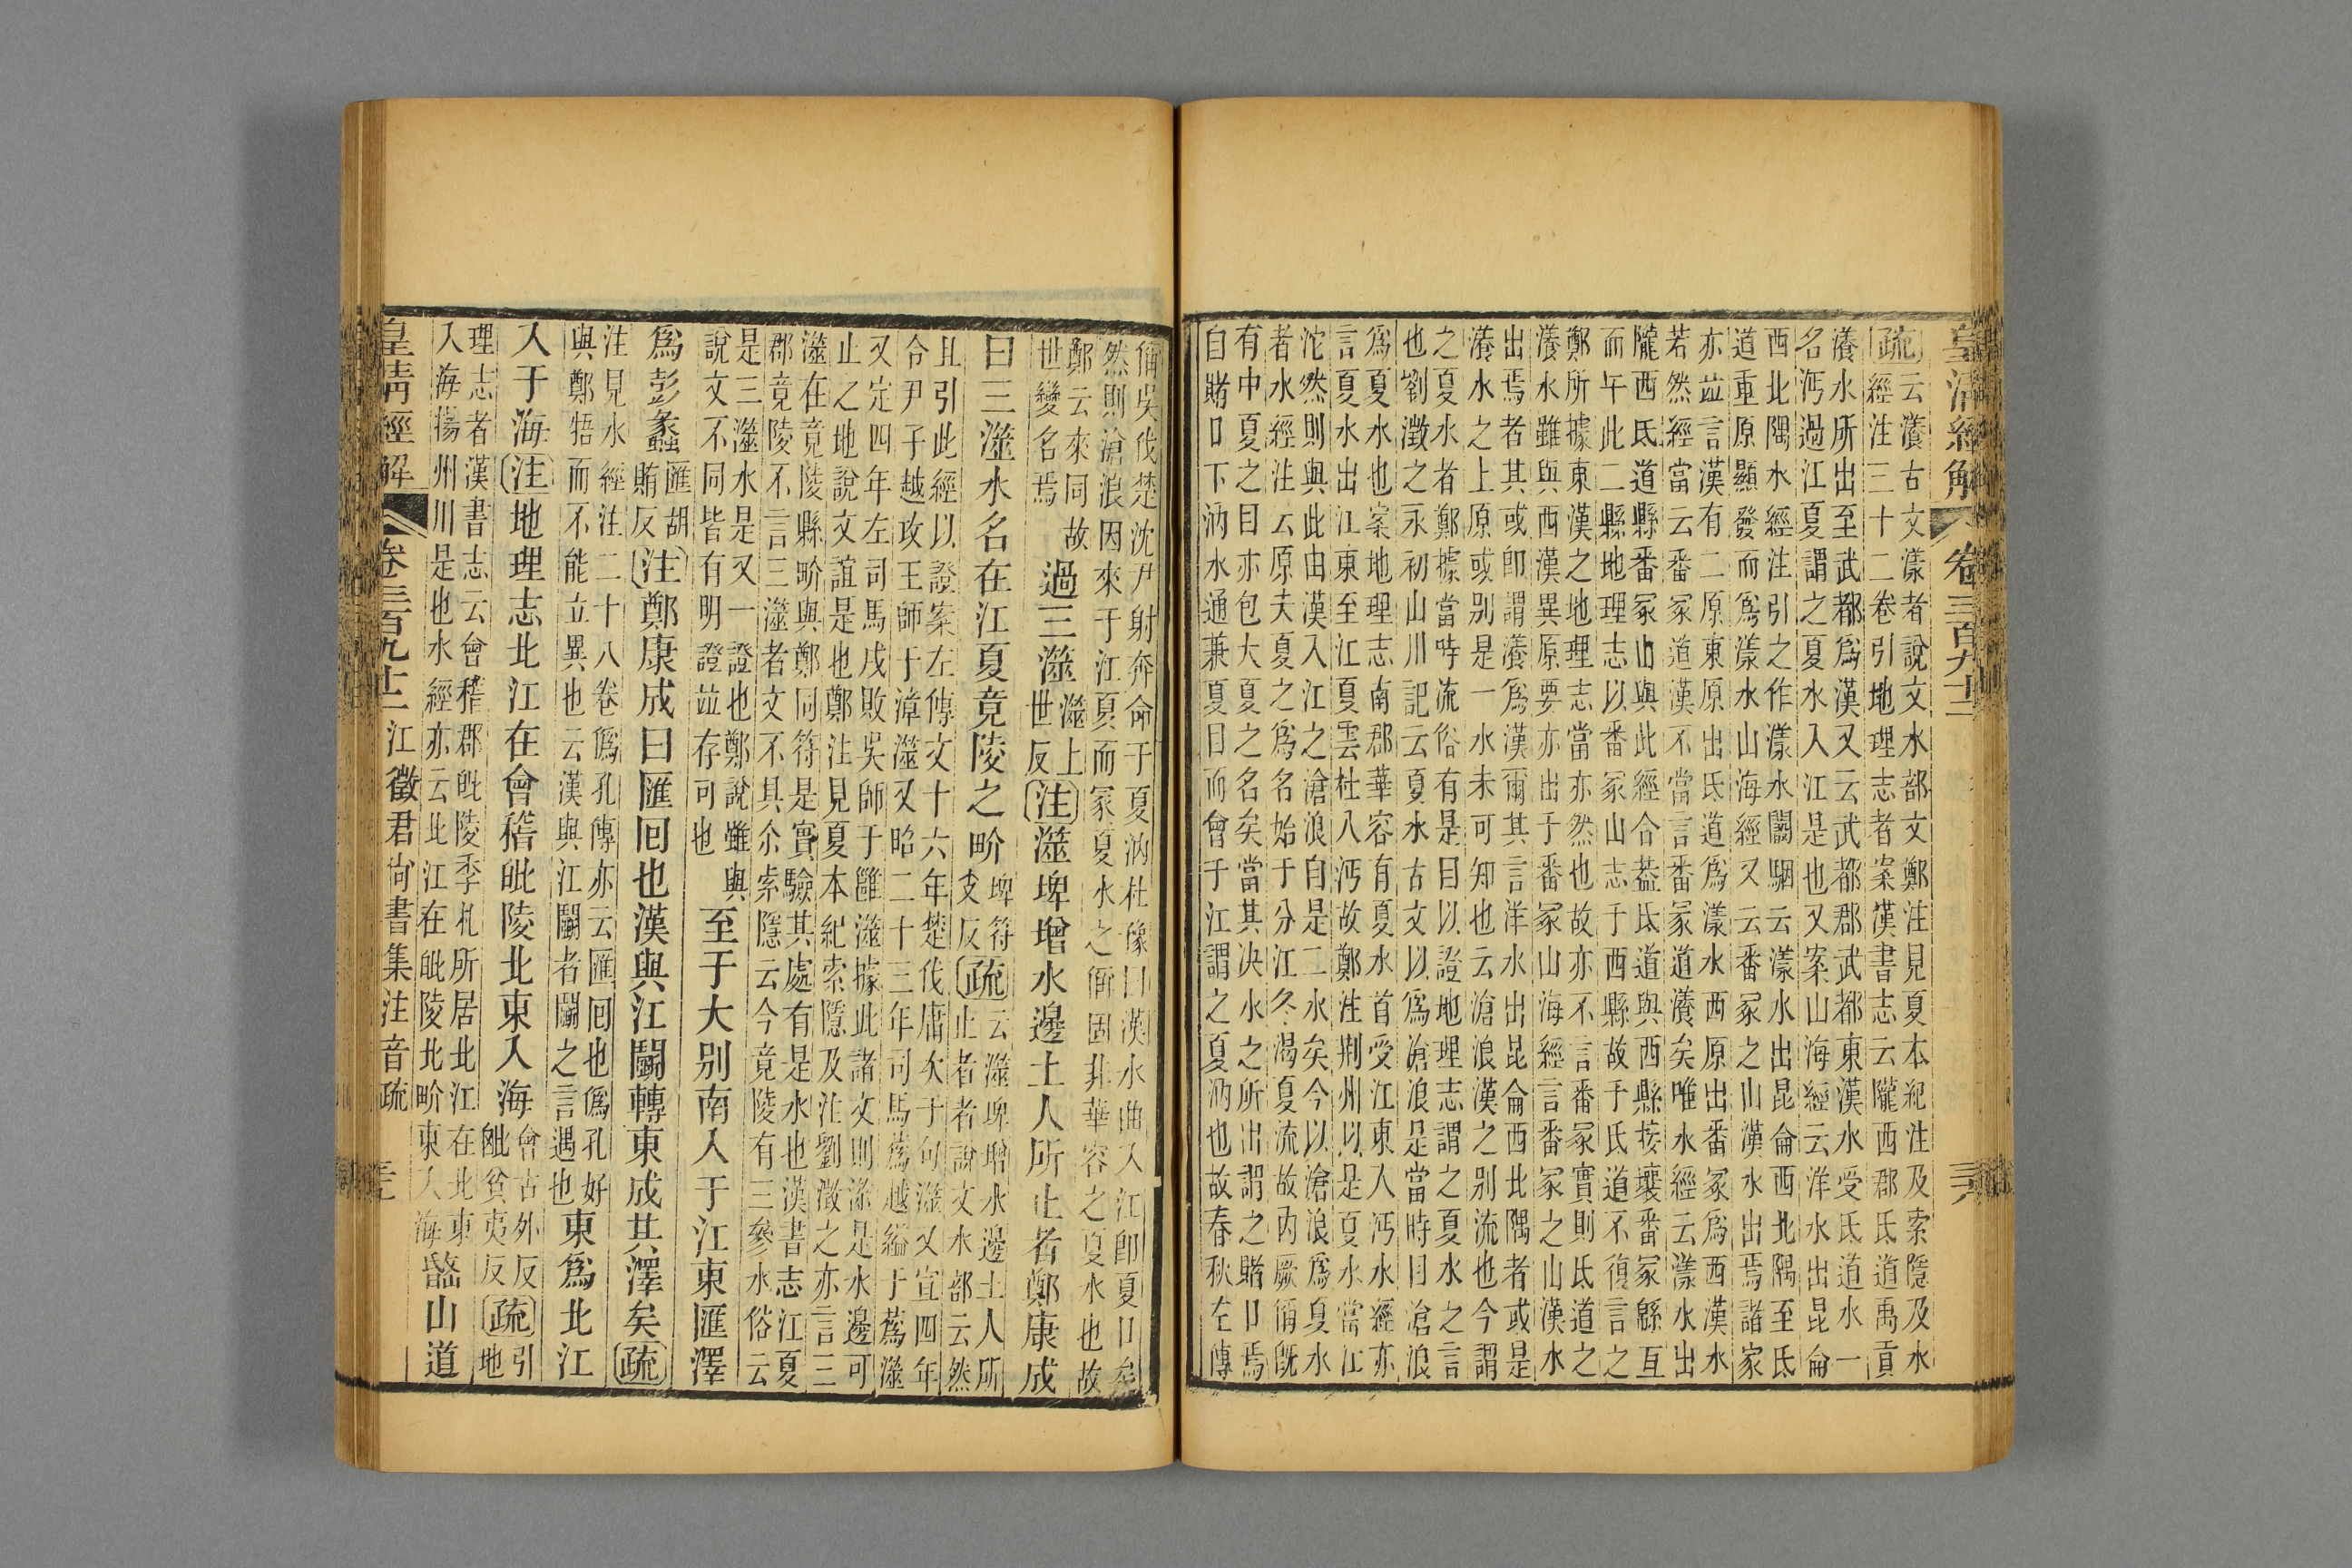 皇清經解 卷三百九十二 三六
疏云瀁古文漾者說文水部文鄭注見夏本紀注及索隱及水
經注三十二卷引地理志者案漢書志云隴西郡氐道禹貢
瀁水所出至武都爲漢又云武都郡武都東漢水受氐道水一
名沔過江夏謂之夏水入江是也又案山海經云洋水出昆侖
西北隅水經注引之作漾水闞駰云漾水出昆侖西北隅至氐
道重原顯發而爲漾水山海經又云番冢之山漢水出焉諸家
亦竝言漢有二原東原出氐道爲漾水西原出番冢爲西漢水
若然經當云番冢道漢不當言番冢道瀁矣唯水經云漾水出
隴西氐道縣番冢山與此經合葢氐道與西縣接壤番冢緜亙
而午此二縣地理志以番冢山志于西縣故于氐道不復言之
鄭所據東漢之地理志當亦然也故亦不言番冢實則氐道之
瀁水雖與西漢異原要亦出于番冢山海經言番冢之山漢水
出焉者其或卽謂瀁爲漢爾其言洋水出昆侖西北隅者或是
瀁水之上原或别是一水未可知也云滄浪漢之别流也今謂
之夏水者鄭據當時流俗有是目以證地理志謂之夏水之言
也劉澂之永初山川記云夏水古文以爲滄浪是當時目滄浪
爲夏水也案地理志南郡華容有夏水首受江東入沔水經亦
言夏水出江東至江夏雲杜入沔故鄭注荆州以是夏水當江
沱然則與此由漢入江之滄浪自是二水矣今以滄浪爲夏水
者水經注云原夫夏之爲名始于分江冬渴夏流故㕯厥偁旣
有中夏之目亦包大夏之名矣當其决水之所出謂之賭口焉
自賭口下沔水通兼夏目而會于江謂之夏汭也故春秋左傳
偁吳伐楚沈尹射奔命于夏汭杜豫曰漢水曲入江卽夏口矣
然則滄浪因來于江夏而冡夏水之偁固非華容之夏水也故
鄭云來同故
世變名焉
過三澨
澨上
世反
注澨埤增水邊土人所止者鄭康成
曰三澨水名在江夏竟陵之畍
埤符
支反
疏
云澨埤增水邊土人所
止者者說文水部云然
且引此經以證案左傳文十六年楚伐庸次于句澨又宣四年
令尹子越攻王師于漳澨又昭二十三年司馬薳越縊于薳澨
又定四年左司馬戌敗吳師于雝澨據此諸文則澨是水邊可
止之地說文誼是也鄭注見夏本紀索隱及注劉澂之亦言三
澨在竟陵縣畍與鄭同符是實驗其處有是水也漢書志江夏
郡竟陵不言三澨者文不具尒索隱云今竟陵有三參水俗云
是三澨水是又一證也鄭說雖與
說文不同皆有明證竝存可也
至于大别南入于江東匯澤
爲彭蠡
匯胡
賄反
注鄭康成曰匯囘也漢與江鬬轉東成其澤矣疏
注見水經注二十八卷僞孔傳亦云匯囘也僞孔好
與鄭牾而不能立異也云漢與江鬬者鬬之言遇也
東爲北江
入于海注地理志北江在會稽毗陵北東入海
會古外反
毗貧夷反
疏
引
地
理志者漢書志云會稽郡毗陵季札所居北江在北東
入海揚州川是也水經亦云北江在毗陵北畍東入海
嶓山道
皇清經解 卷三百九十二 江徵君尙書集注音疏 三七